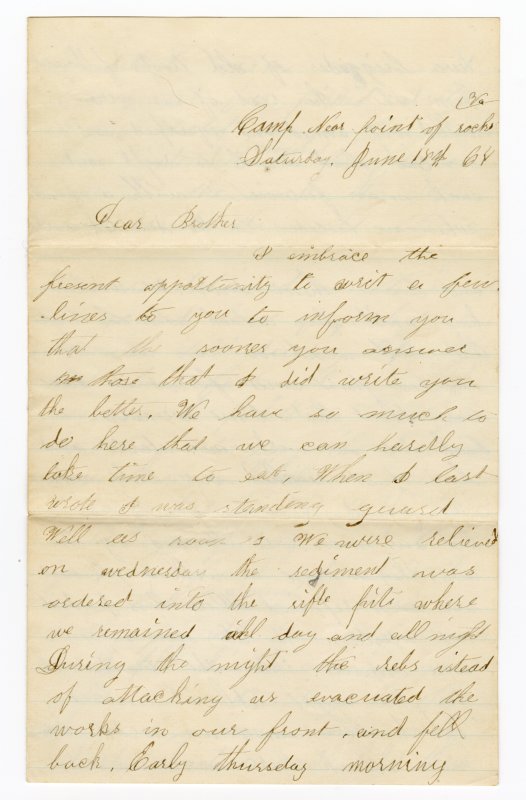 Va
Camp Near point of rocks
Saturday, June 18th 64
Dear Brother
I embrace the
present opportunity to writ a few
lines to you to inform you
that the sooner you answer
those that I did write you
the better. We have so much to
do here that we can hardly
take time to eat, When I last
wrote I was standing guard
Well as soon as We were relieved
on wednesday the regiment was
ordered into the rifle pits where
we remained all day and all night
During the night the rebs istead
of attacking us evacuated the
works in our front, and fell
back. Early thursday morning